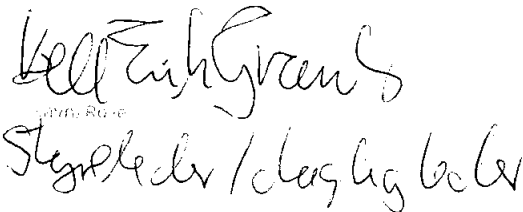 Kjell Erik Grans
Styreleder / daglig leder